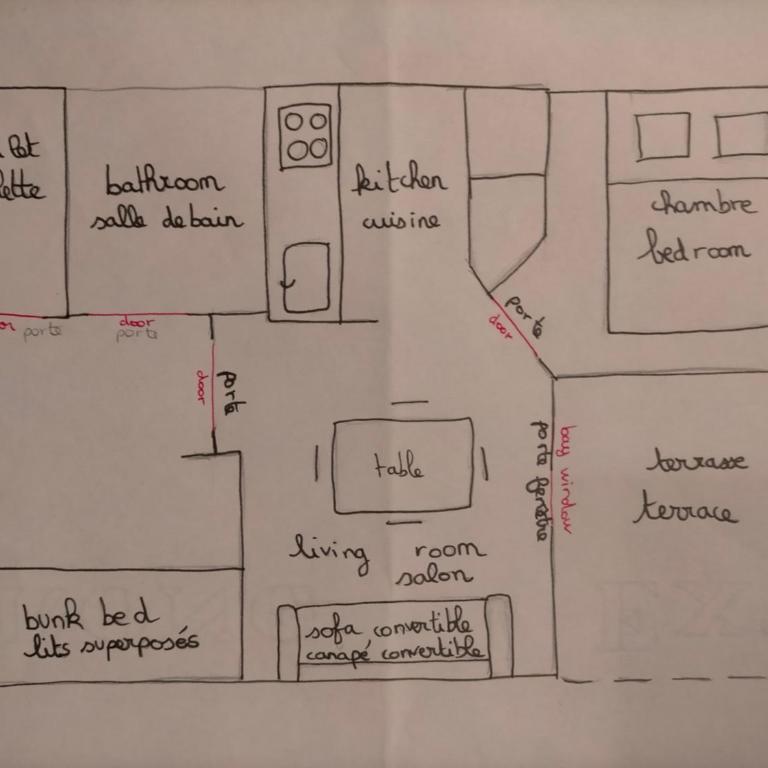 bathroom
salle de bain
kitchen
cuisine
chambre
bedroom
porte
door
porte
porte
door
door
porte
table
porte fenêtre
bay window
terrasse
terrace
living room
salon
bunk bed
lits superposés
sofa convertible
canapé convertible